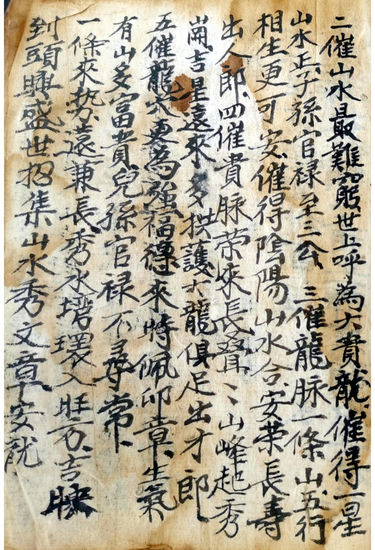 二催山水最難窮世上呼為大貴龍催得一星
山水正子孫官禄至三公三催龍脉一条山五行
相生更可安催得陰陽山水合安荣長寿
出人郎四催貴脉荣來長聳〻山峰起秀
吉星遠來多拱護大龍俱足出才郎
五催龍穴更為強福得來時佩印章生氣
有山多富貴兒孫官禄不尋常
一條來勢遠兼長秀水環又旺方吉
到頭興盛世招集山水秀文章下安龍